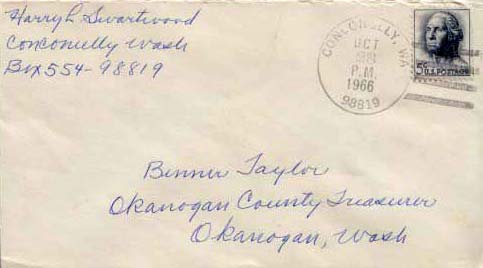 Harry L Swartwood
Conconully Wash
Box 554-98819
CONCONULLY, WA
OCT
P.M.
1966
98819
5¢ U.S. POSTAGE
Benner Taylor
Okanogan County Treasurer
Okanogan, Wash